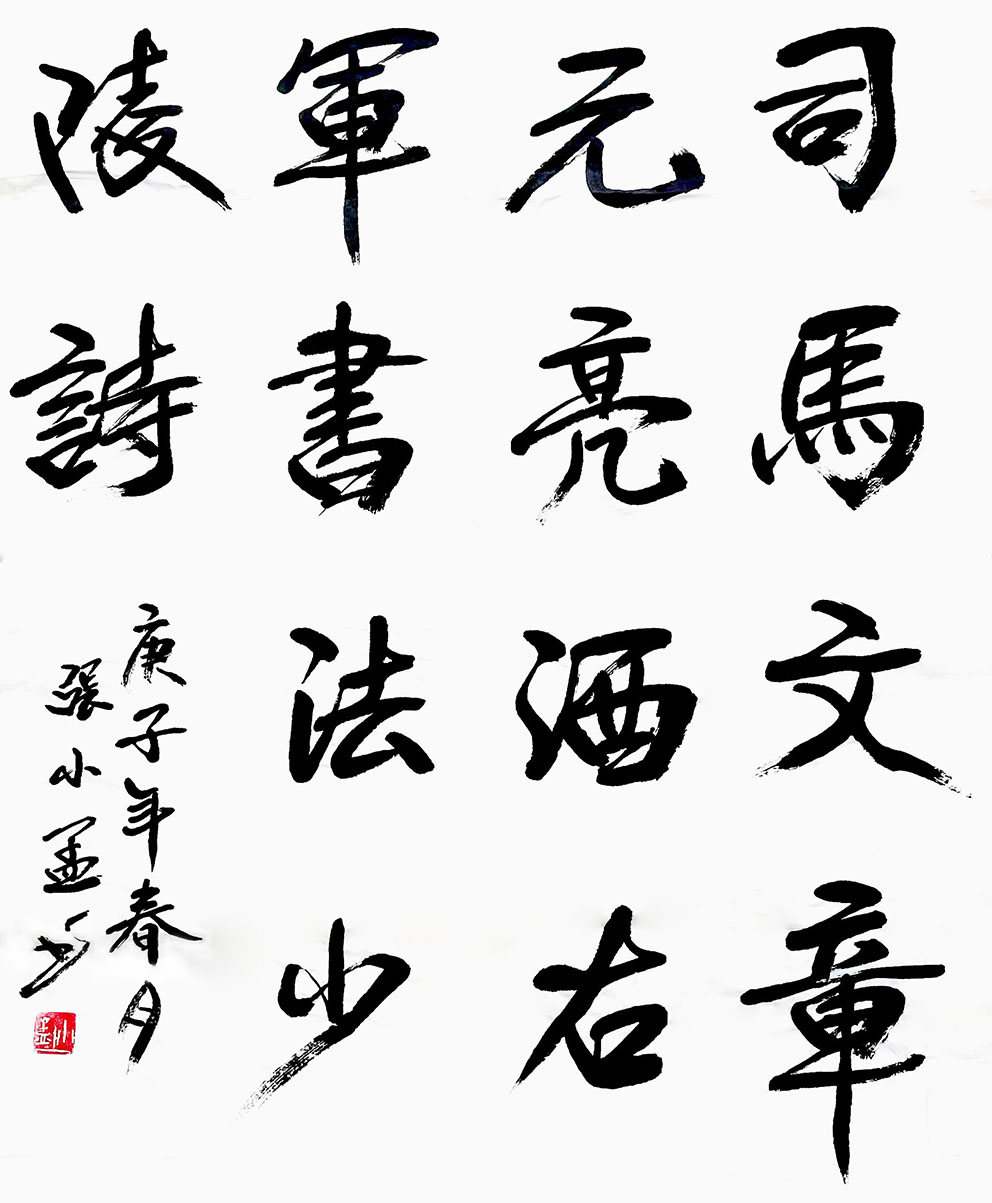 司馬文章
元亮酒右
軍書法少
陵詩
庚子年春月
張小孟书